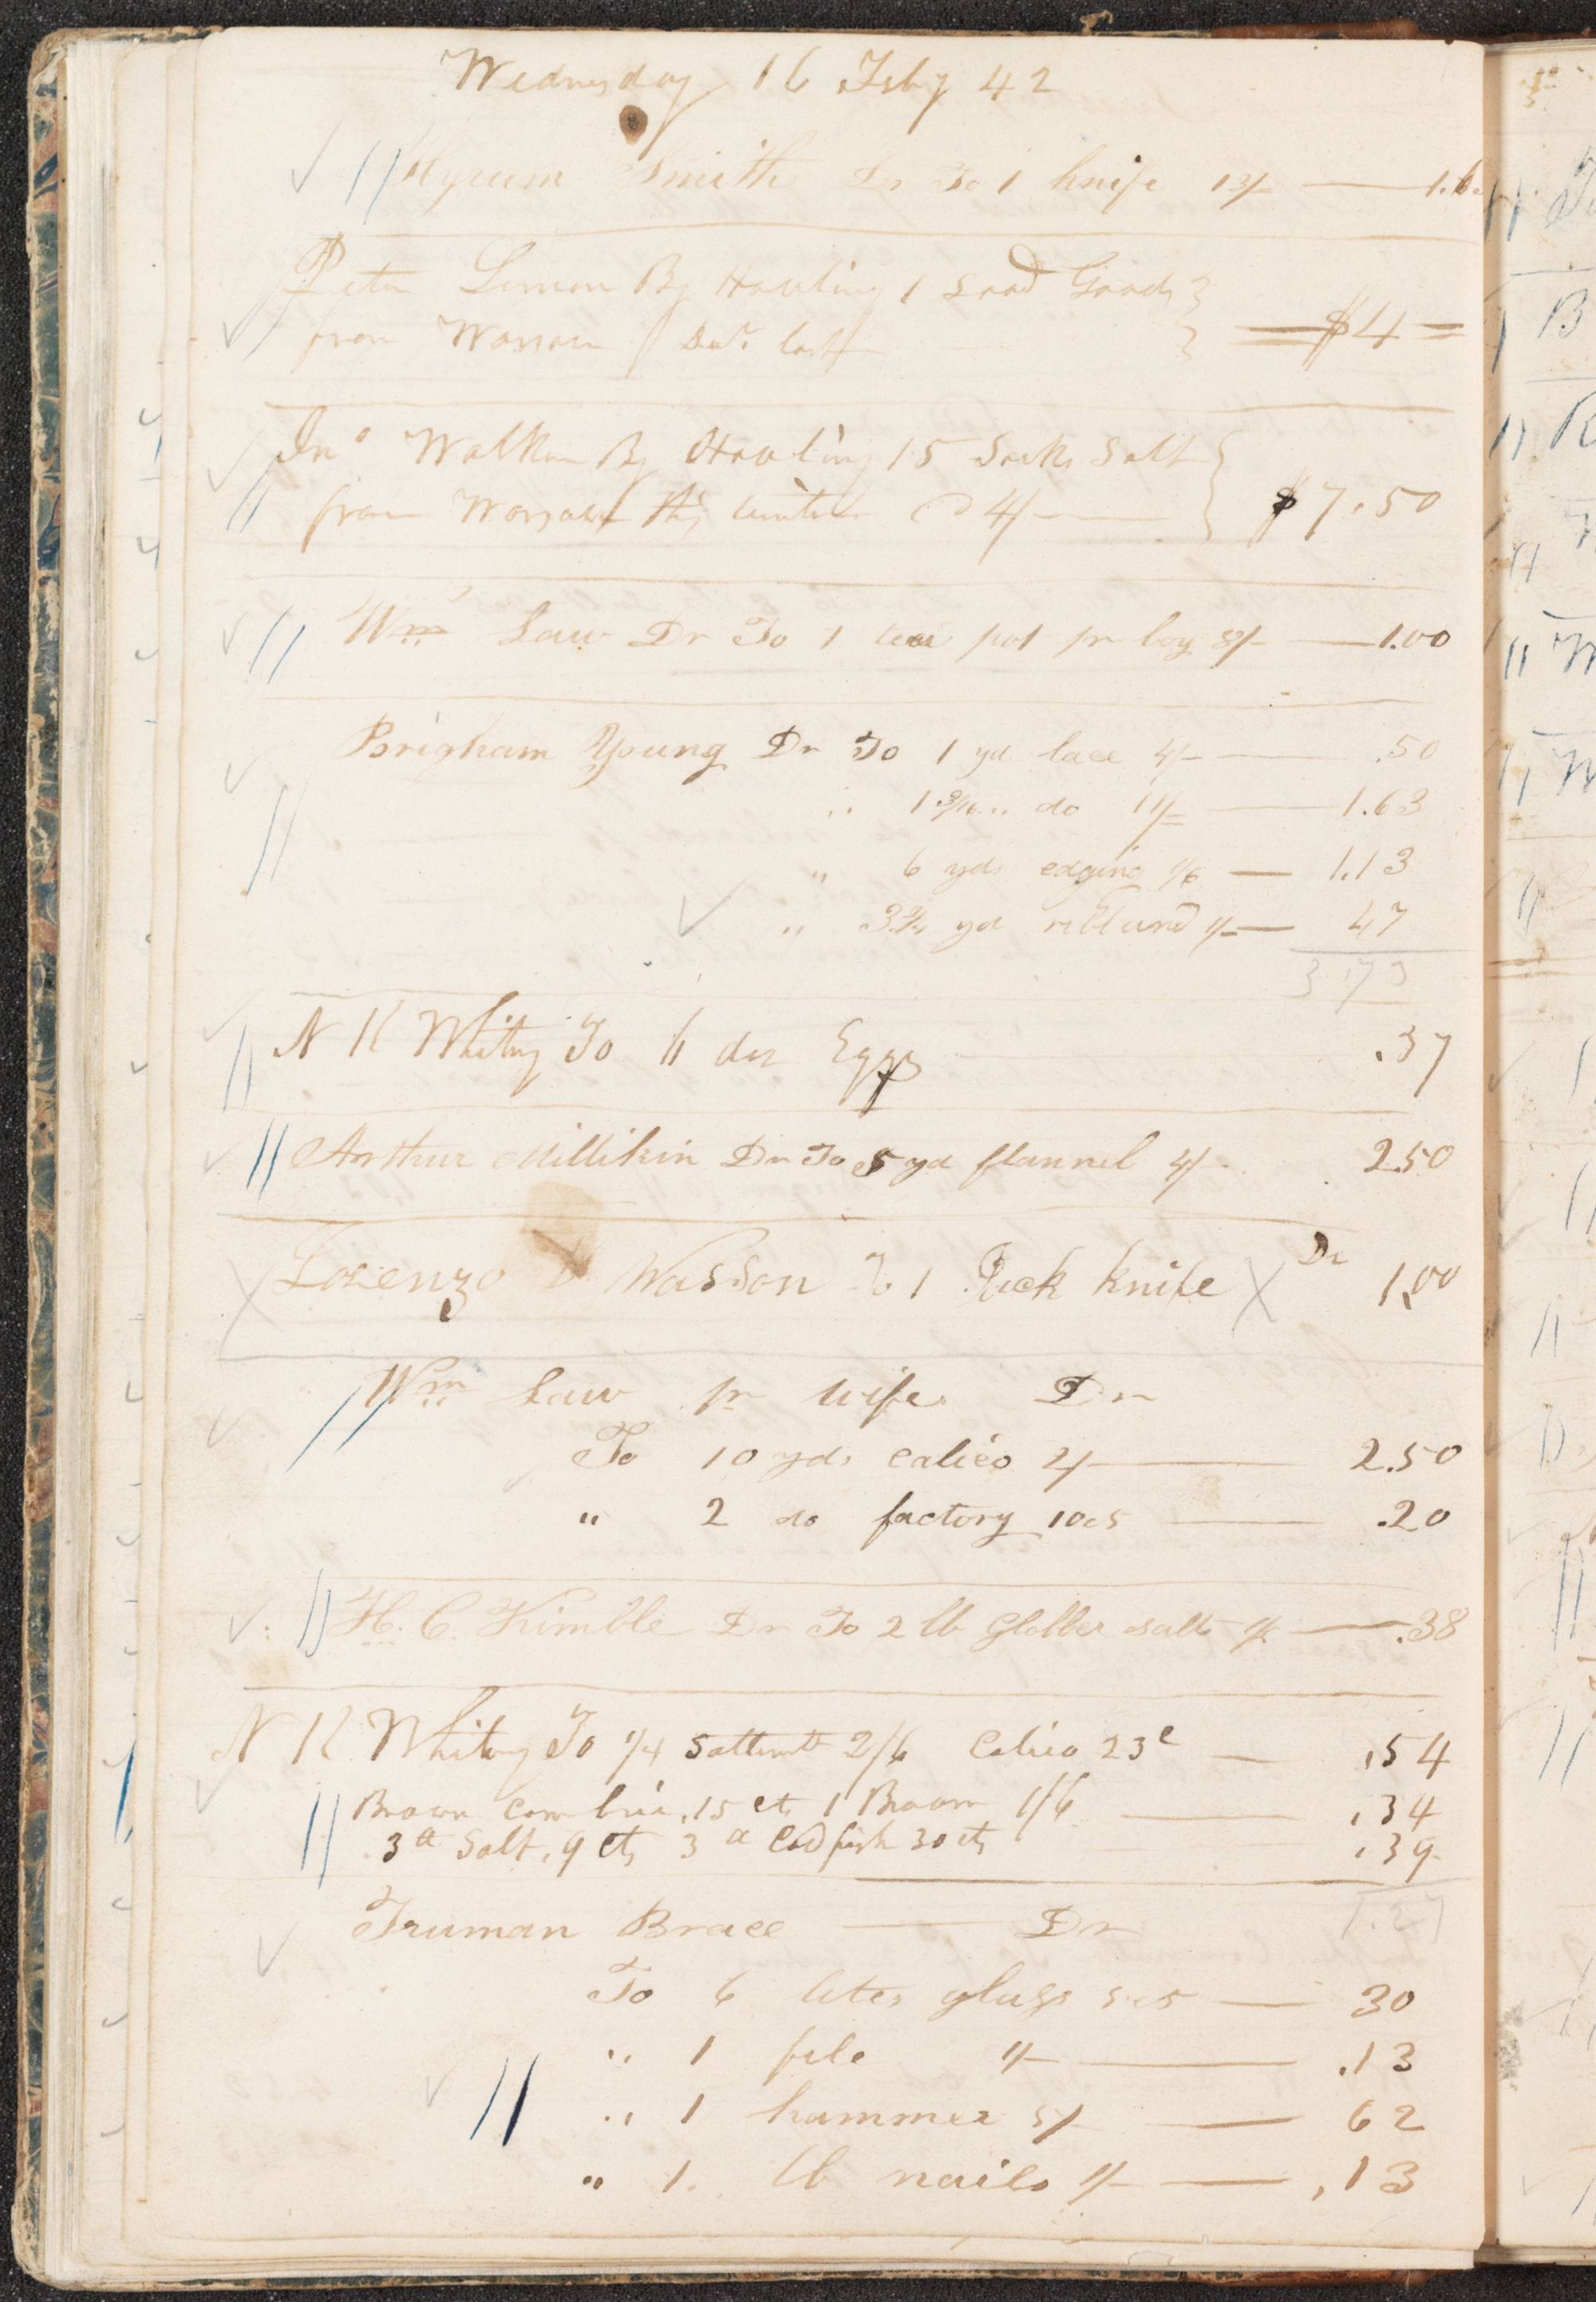 Wednesday 16 Feby 42
Hyrum Smith Dr To 1 knife 13/- 1.6
Peter Limon By Hauling 1 Load Goods
from Warsaw Decr last $4
Jno Walker By Hauling 15 Sacks Salt
from Warsaw this winter @ 4/- $7.50
Wm Law Dr To 1 tea pot pr boy 8/- 1.00
Brigham Young Dr To 1 yd lace 4/- .50
" 1 3/16 " do 11/- 1.63
" 6 yds edging 1/6 1.13
" 3 3/4 yd ribband 1/- 47
3.73
N K Whitny To doz Eggs .37
Arthur Millikin Dr To 5 yd flannel 4/- 2.50
Lorenzo D Wasson To 1 knife Dr 1.00
Wm Law pr wife Dr
To 10 yds calico 2/- 2.50
" 2 do factory 10cs .20
H. C. Kimble Dr To 2 lb Glabber salts 1/6 .38
N K Whitny To 1/4 Sattinett 2/6 Calico 23c .54
Brown Cambric, 15 cts 1 Broom 1/6 .34
3 lb Salt, 9 cts 3 lb Codfish 30 cts .39
1.27
Truman Brace Dr
To 6 lites glass 5cs 30
" 1 file 1/- .13
" 1 hammer 5/ 62
" 1 lb nails 1/- .13